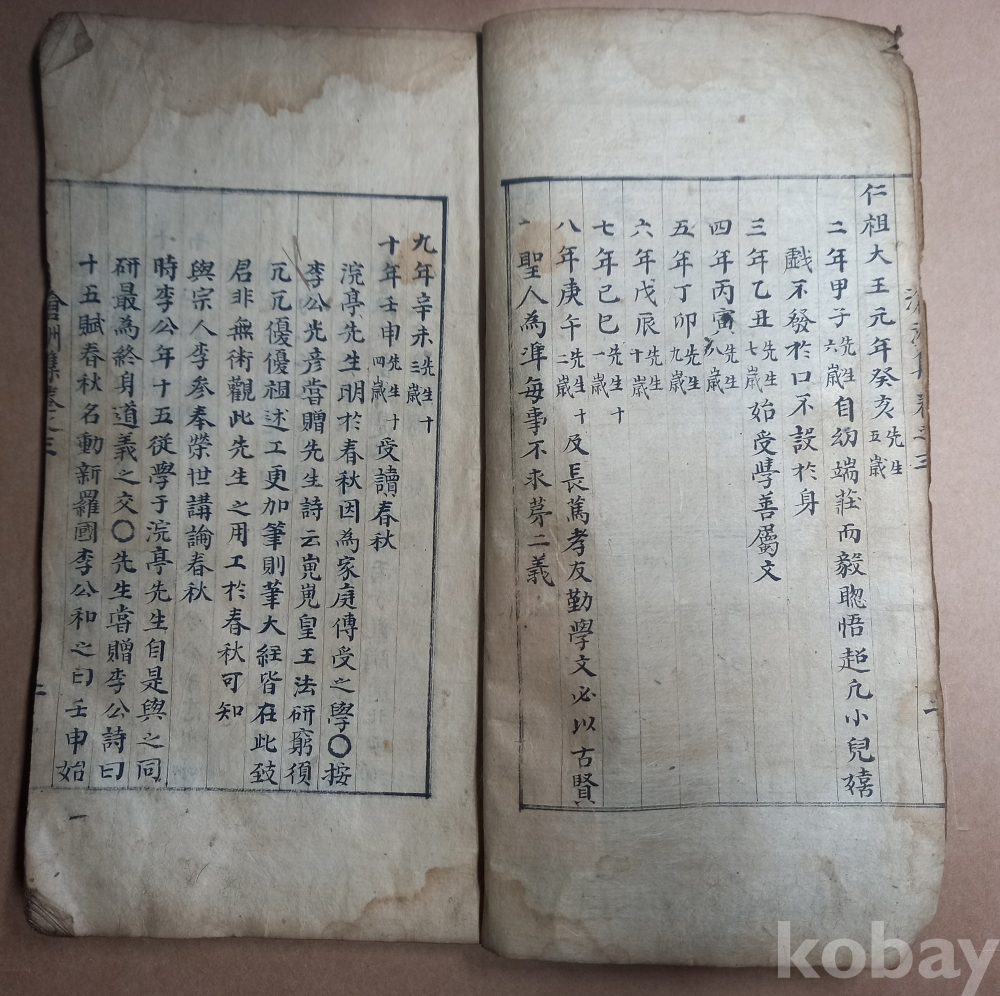 仁祖大王元年癸亥先生五歲
二年甲子先生六歲自幼端莊而毅聰悟超凡小兒嬉
戱不發於口不設於身
三年乙丑先生七歲始受學善屬文
四年丙寅先生八歲
五年丁卯先生九歲
六年戊辰先生十歲
七年己巳先生十一歲
八年庚午先生十二歲及長篤孝友勤學文必以古賢
聖人為準每事不求第二義
二
九年辛未先生十三歲
十年壬申先生十四歲受讀春秋
浣亭先生明於春秋因為家庭傳受之學〇按
李公光彦嘗贈先生詩云嵬嵬皇王法研窮須
兀兀優優祖述工更加筆則筆大経皆在此豉
君非無術觀此先生之用工於春秋可知
與宗人李參奉榮世講論春秋
時李公年十五従學于浣亭先生自是與之同
研最為終身道義之交〇先生嘗贈李公詩曰
十五賦春秋名動新羅國李公和之曰壬申始
滄洲集卷之三
二
一
kobay